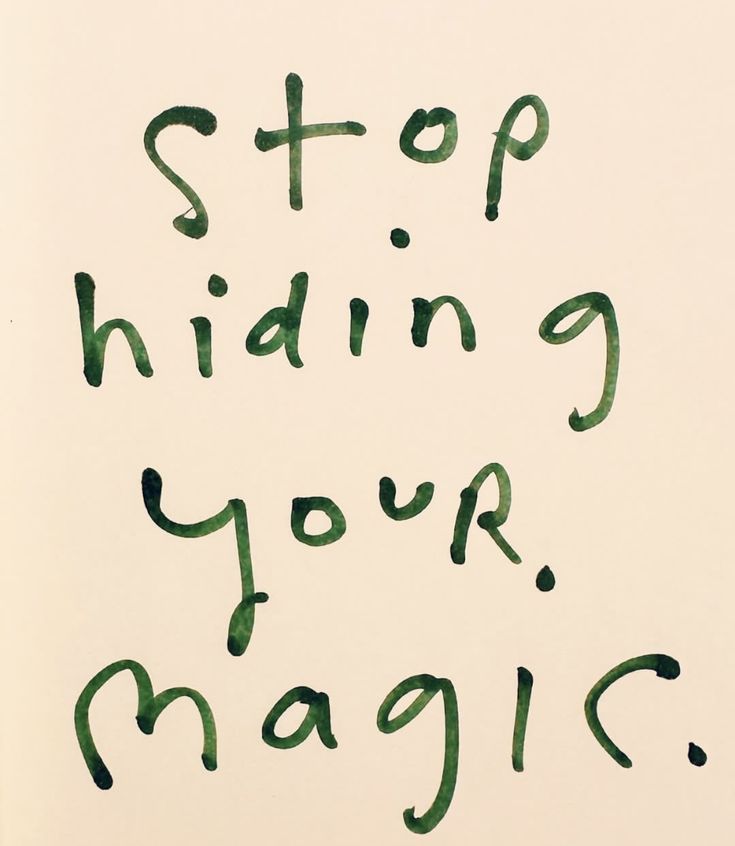 stop
hiding
youR
magic.